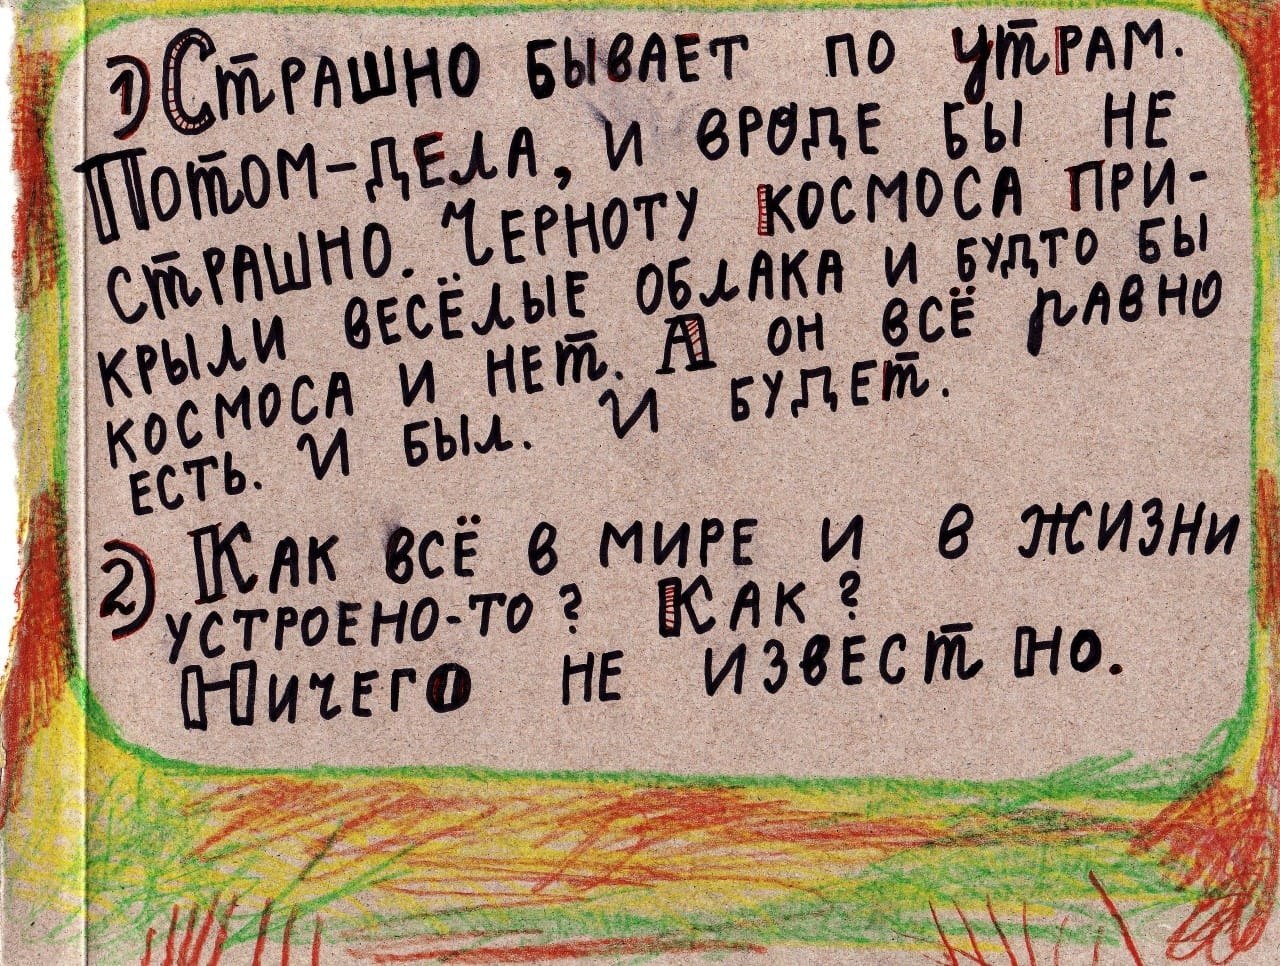 1) Страшно бывает по утрам.
Потом-дела, и вроде бы не
страшно. Черноту космоса при-
крыли весёлые облака и будто бы
космоса и нет. А он всё равно
есть. И был. И будет.
2) Как всё в мире и в жизни
устроено-то? Как?
Ничего не известно.